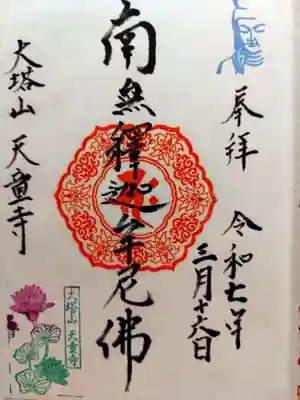 奉拝
令和七年
三月十六日
南無釋迦牟尼佛
大塔山 天童寺
大塔山 天童寺